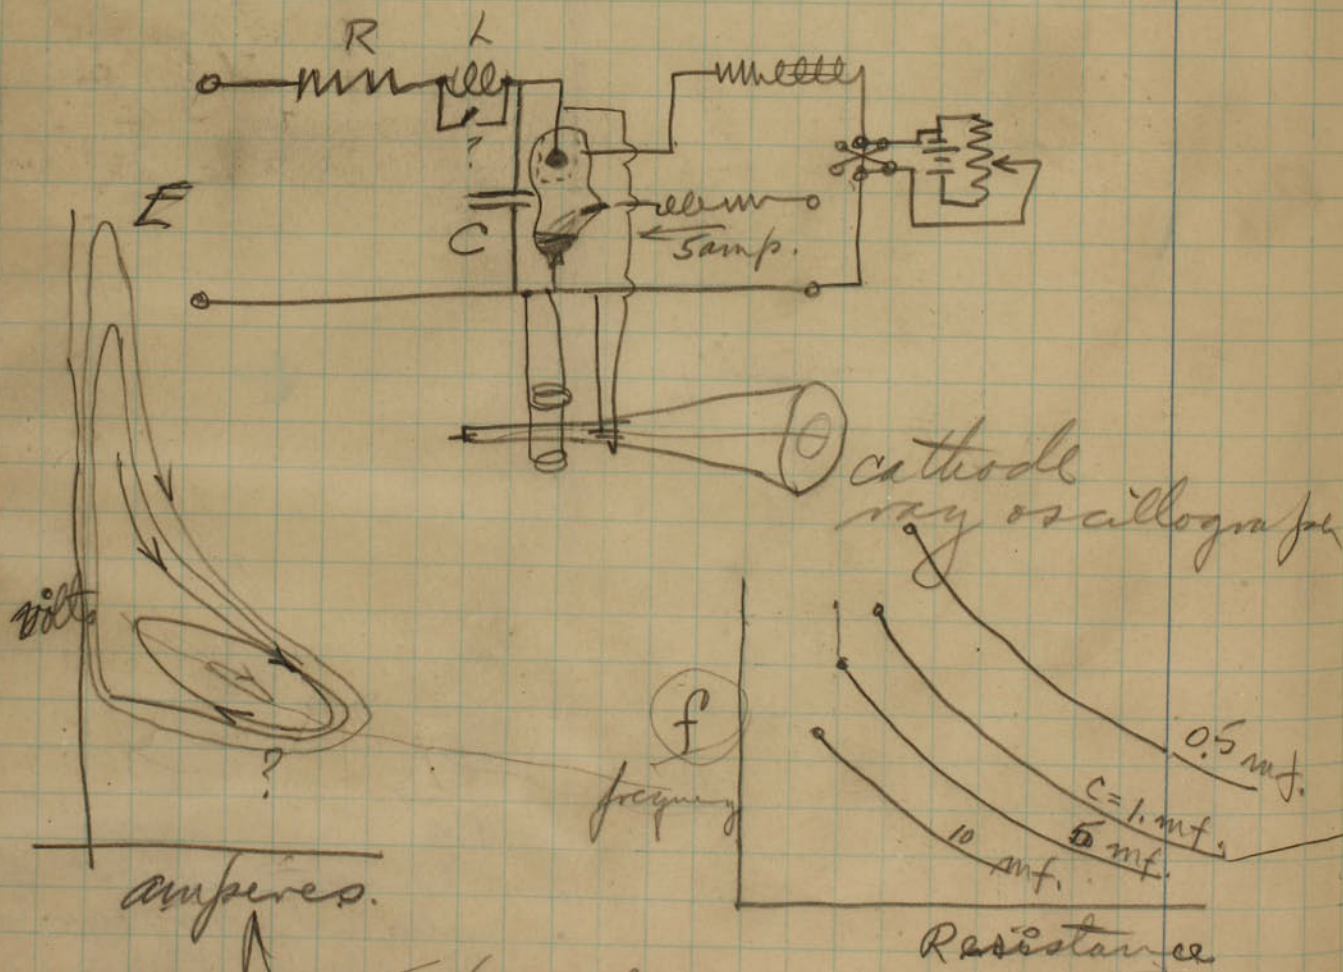 R L
?
E
C
5 amp.
cathode
ray oscillograph
volts
?
amperes.
f
frequency
0.5 mf.
C=1. mf.
5 mf.
10 mf.
Resistance